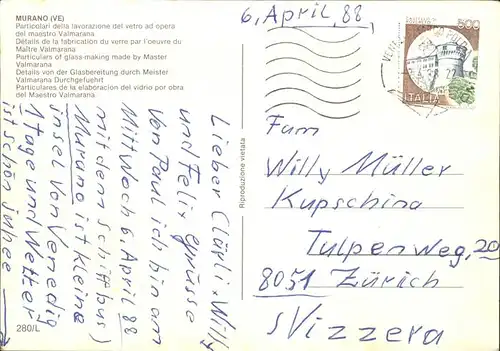 MURANO (VE)
Particolari della lavorazione del vetro ad opera
del maestro Valmarana
Détails de la fabrication du verre par l'oeuvre du
Maître Valmarana
Particulars of glass-making made by Master
Valmarana
Details von der Glasbereitung durch Meister
Valmarana Durchgefuehrt
Particulares de la elaboración del vidrio por obra
del Maestro Valmarana
Lieber Cläpli x Willy
und Felix grüsse
Von Paul ich bin am
Mittwoch 6, April 88
mit dem schiff bus)
Murano ist kleine
insel von Venedig
1 tage und Wetter
ist schön juhee
280/L
Riproduzione vietata
6, April, 88
500
ITALIA
Fam
Willy Müller
Kupschina
Tulpenweg, 20
8051 Zürich
SVizzera